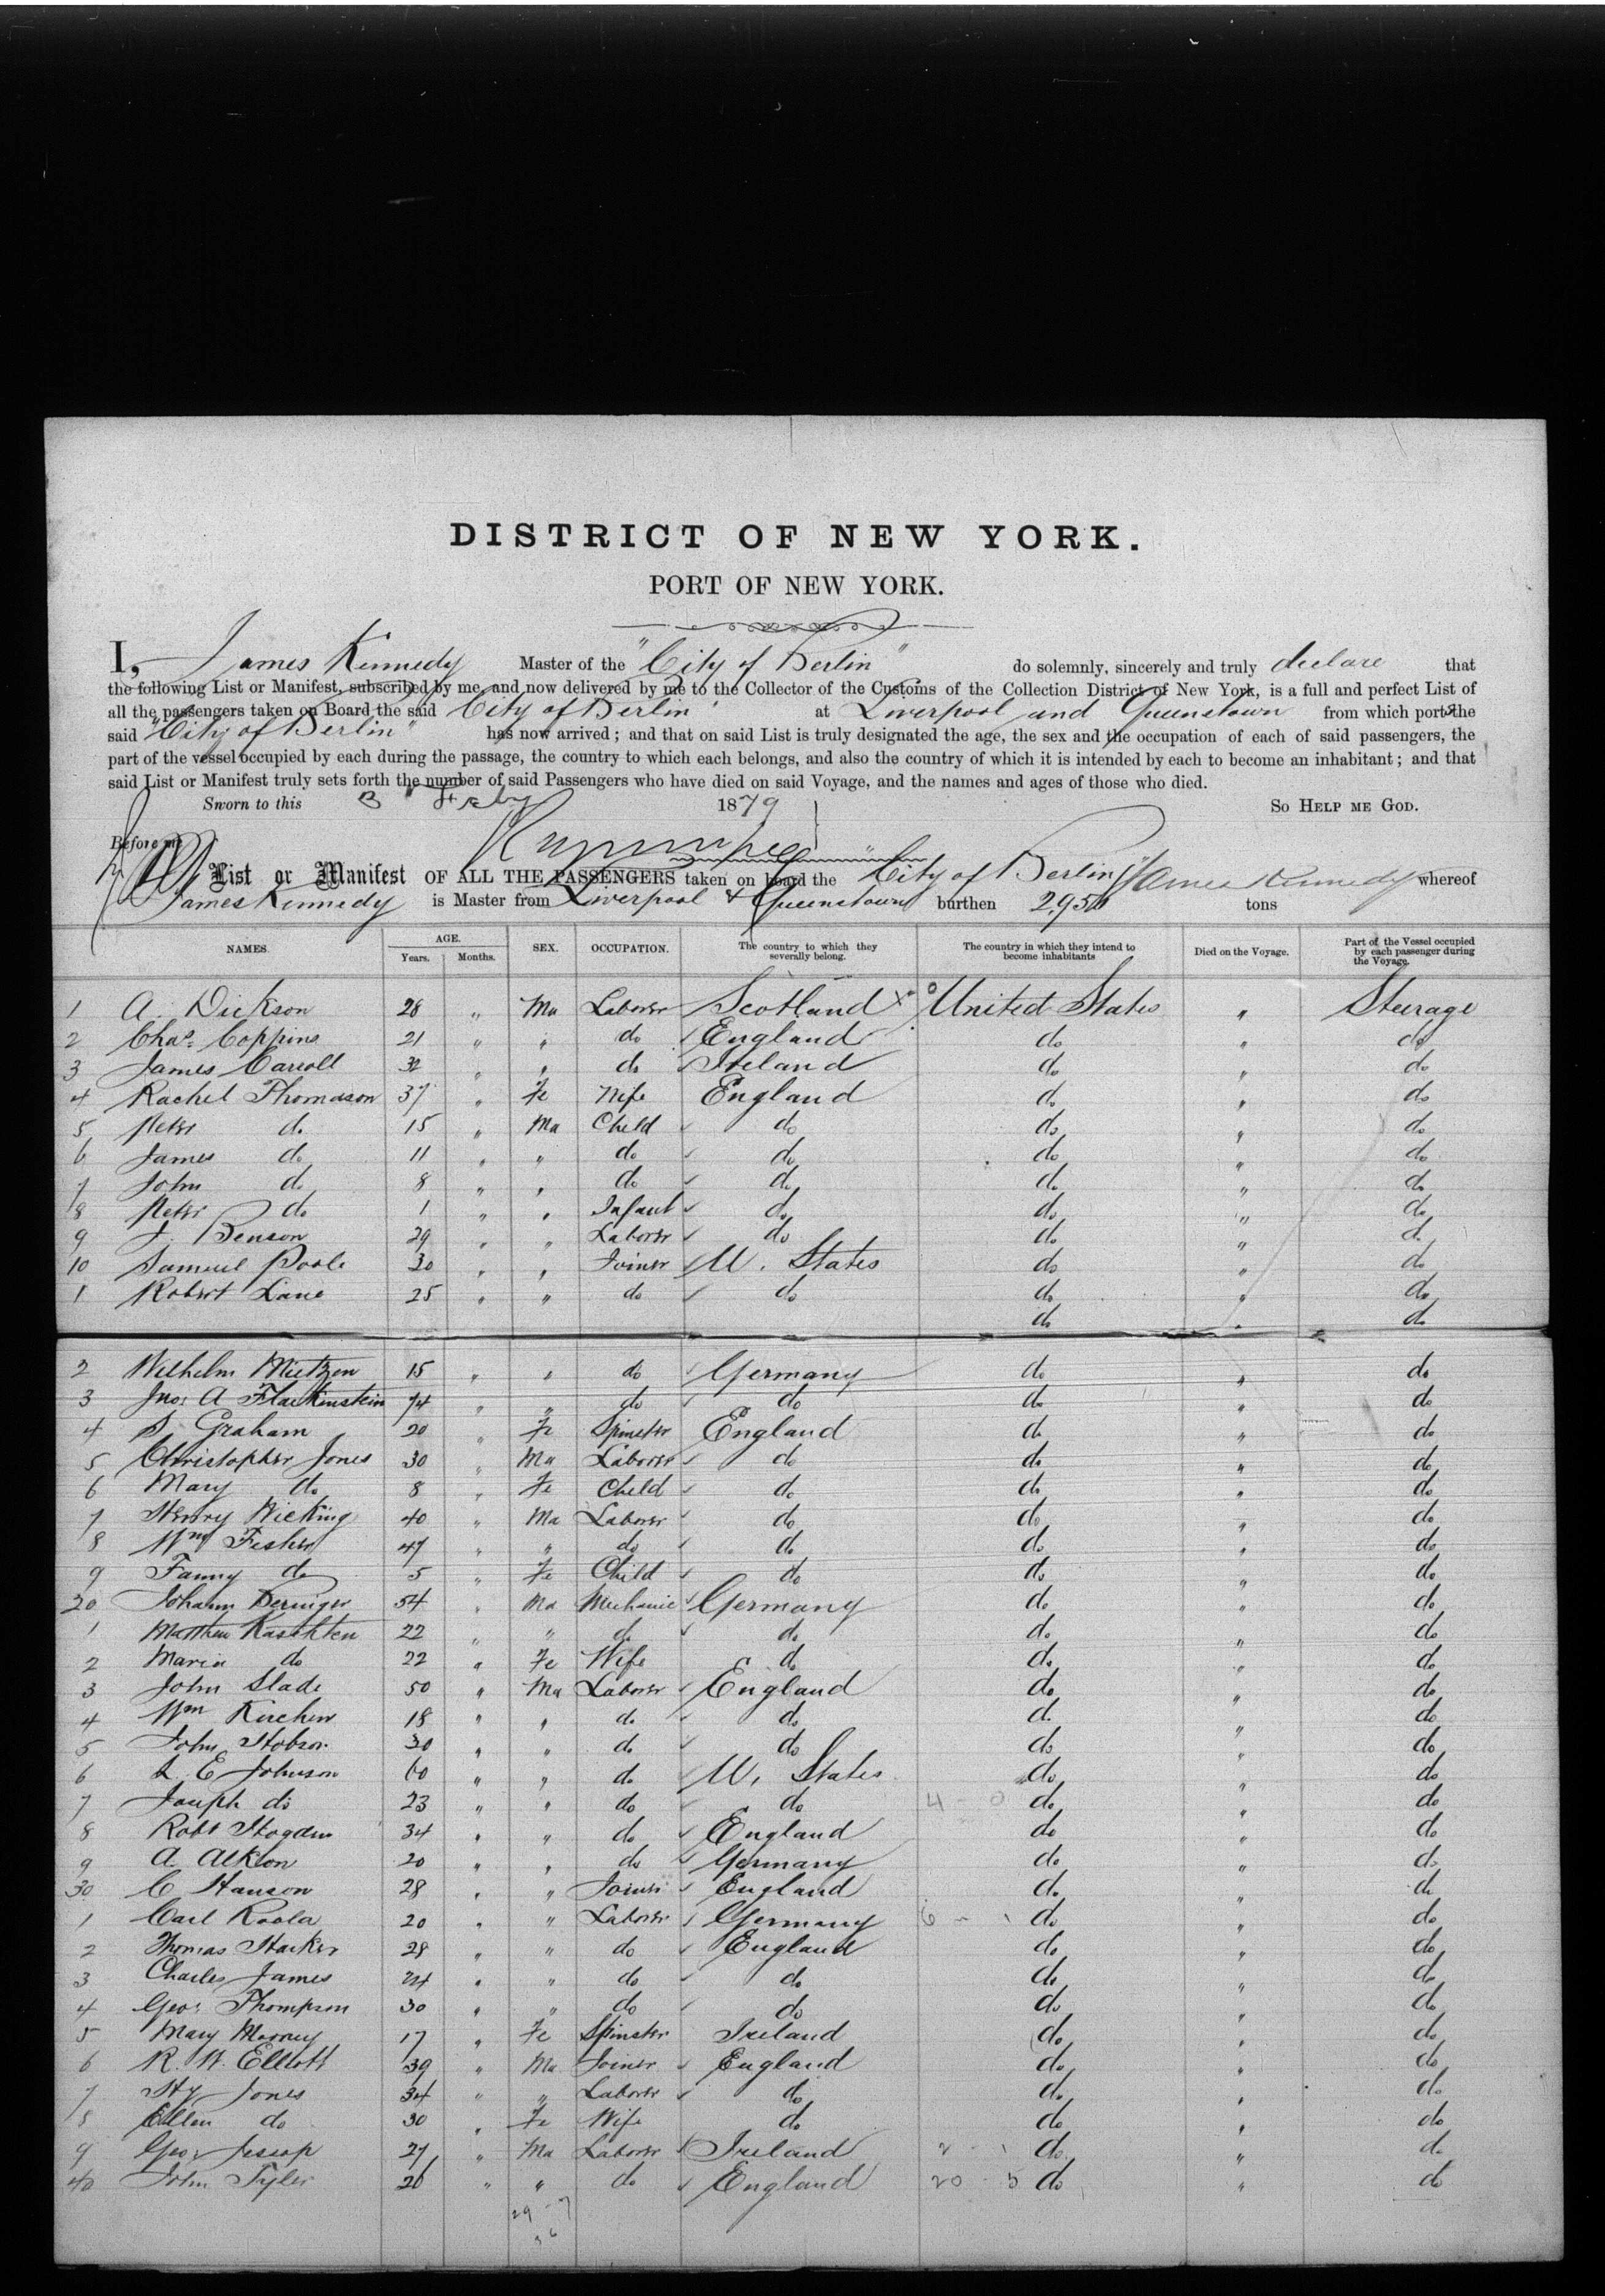 DISTRICT OF NEW YORK.
PORT OF NEW YORK.
I, James Kennedy Master of the "City of Berlin" do solemnly, sincerely and truly declare that
the following List or Manifest, subscribed by me, and now delivered by me to the Collector of the Customs of the Collection District of New York, is a full and perfect List of
all the passengers taken on Board the said City of Berlin at Liverpool and Queenstown from which port the
said "City of Berlin" has now arrived; and that on said List is truly designated the age, the sex and the occupation of each of said passengers, the
part of the vessel occupied by each during the passage, the country to which each belongs, and also the country of which it is intended by each to become an inhabitant; and that
said List or Manifest truly sets forth the number of said Passengers who have died on said Voyage, and the names and ages of those who died.
Sworn to this Feby 1879 So Help me God.
Before me
List or Manifest OF ALL THE PASSENGERS taken on board the City of Berlin James Kennedy whereof
James Kennedy is Master from Liverpool & Queenstown burthen tons
NAMES. AGE. Years. Months. SEX. OCCUPATION. The country to which they severally belong. The country in which they intend to become inhabitants Died on the Voyage. Part of the Vessel occupied by each passenger during the Voyage.
1 A. Dickson 28 " Ma Laborer Scotland United States " Steerage
2 Chas. Coppins 21 " " do England do " do
3 James Carroll 32 " " do Ireland do " do
4 Rachel Thomason 37 " Fe Wife England do " do
5 Peter do 15 " Ma Child do do " do
6 James do 11 " " do do do " do
7 John do 8 " " do do do " do
8 Peter do 1 " " Infant do do " do
9 J. Benson 29 " " Laborer do do " do
10 Samuel Poole 30 " " Joiner U. States do " do
1 Robert Lane 25 " " do do do " do
do " do
2 Wilhelm Mietzen 15 " " do Germany do " do
3 Jno. A 74 " " do do do " do
4 S. Graham 20 " Fe Spinster England do " do
5 Christopher Jones 30 " Ma Laborer do do " do
6 Mary do 8 " Fe Child do do " do
7 Henry Wicking 40 " Ma Laborer do do " do
8 Wm Fisher 47 " " do do do " do
9 Fanny do 5 " Fe Child do do " do
20 Johann 54 " Ma Mechanic Germany do " do
1 Matthew 22 " " do do do " do
2 Maria do 22 " Fe Wife do do " do
3 John Slade 50 " Ma Laborer England do " do
4 Wm 18 " " do do do " do
5 John Hobson 30 " " do do do " do
6 L. E Johnson 60 " " do U. States do " do
7 Joseph do 23 " " do do do " do
8 Robt Hogden 34 " " do England do " do
9 A. 20 " " do Germany do " do
30 C Hanson 28 " " Joiner England do " do
1 Carl Koola 20 " " Laborer Germany do " do
2 Thomas 28 " " do England do " do
3 Charles James 24 " " do do do " do
4 Geo. Thompson 30 " " do do do " do
5 Mary Mooney 17 " Fe Spinster Ireland do " do
6 R. W. Elliott 39 " Ma Joiner England do " do
7 Hy Jones 34 " " Laborer do do " do
8 Ellen do 30 " Fe Wife do do " do
9 Geo. Jessop 27 " Ma Laborer Ireland do " do
40 John Tyler 26 " " do England 20 - 5 do " do
29 - 7
36